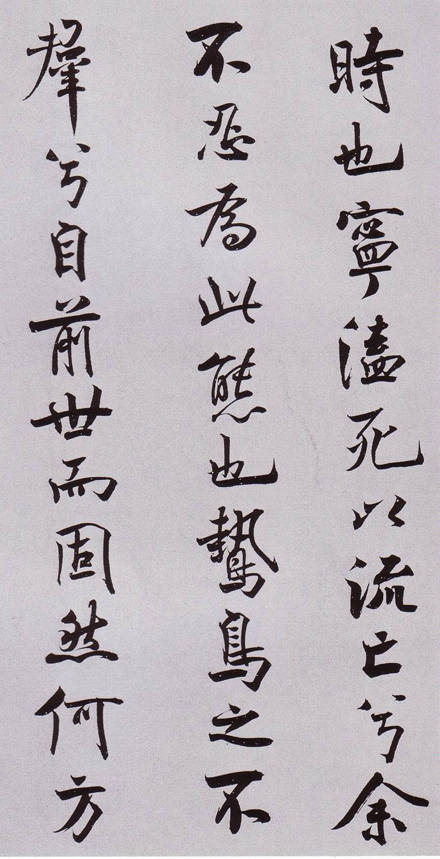 時也寧溘死以流亡兮余
不忍為此態也鷙鳥之不
羣兮自前世而固然何方